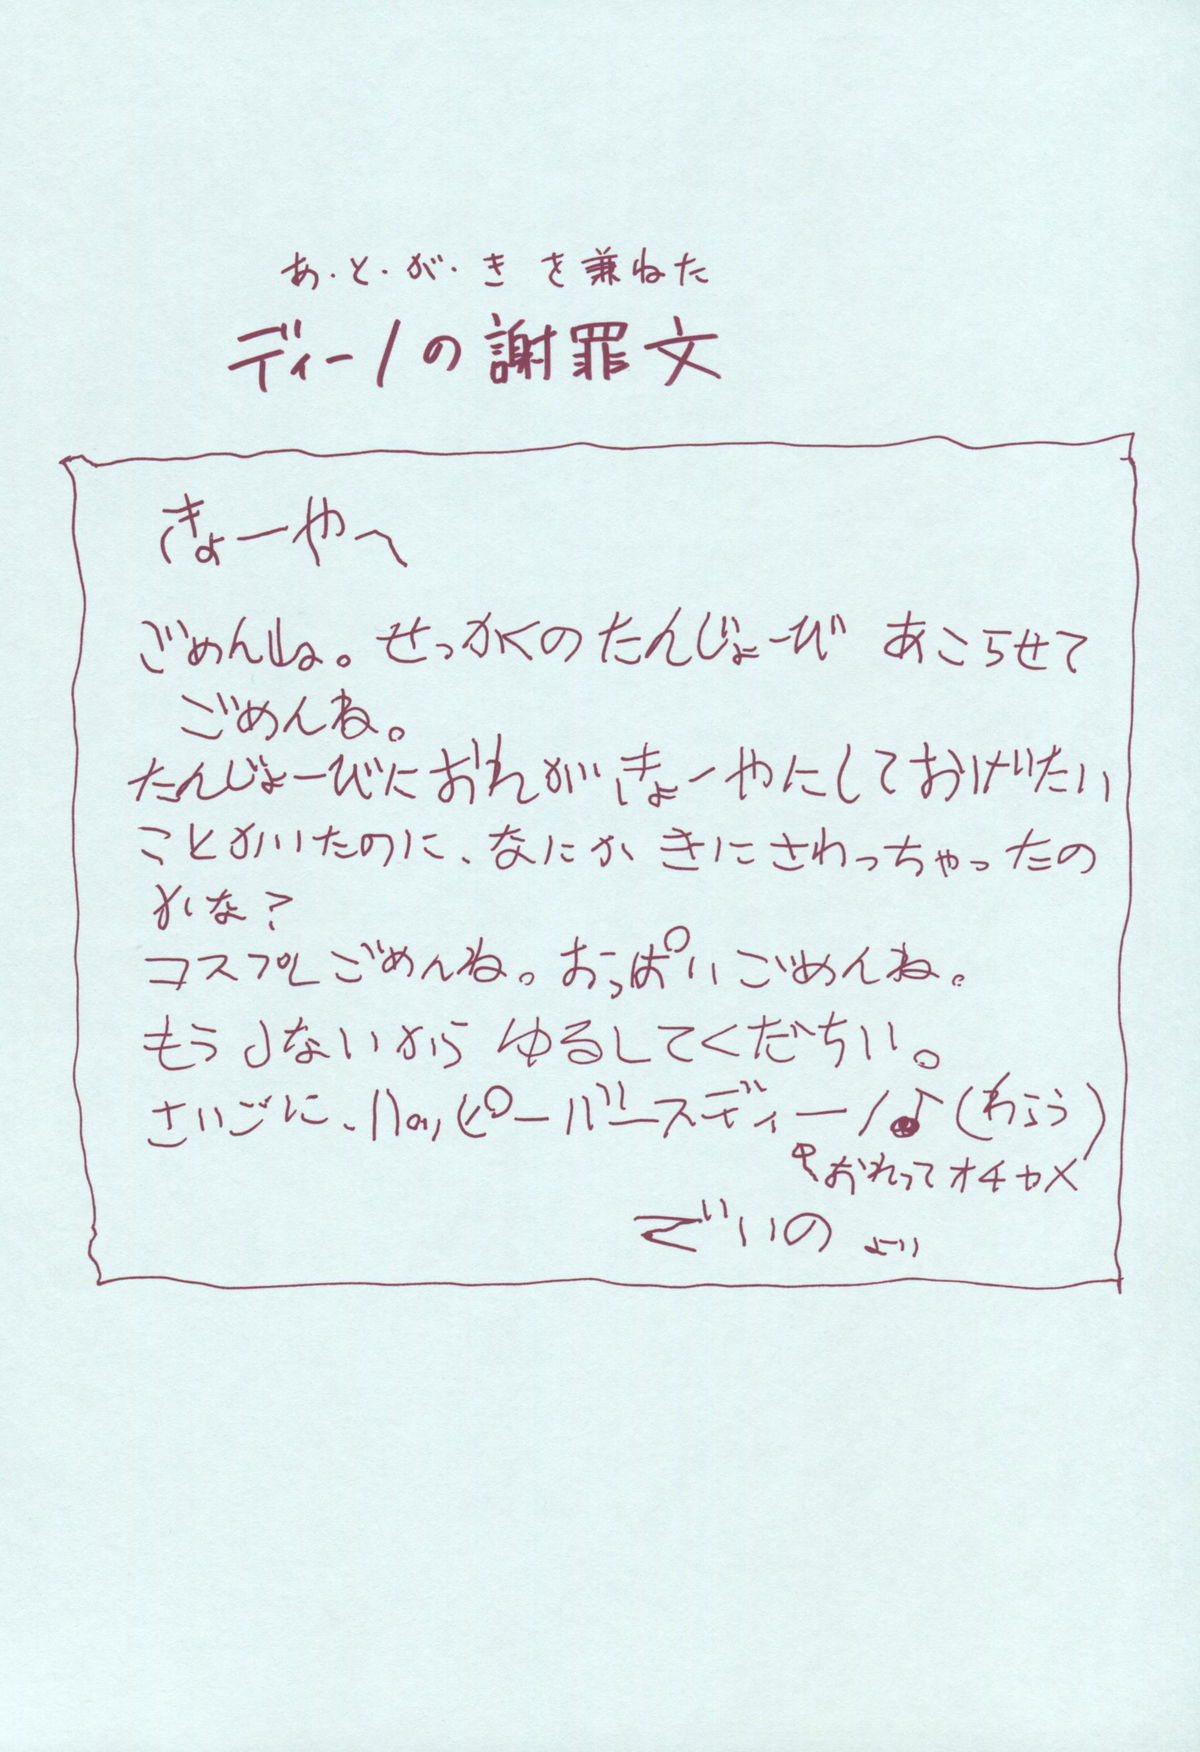 あ・と・が・き を兼ねた
ディーノの謝罪文
きょーやへ
ごめんね。せっかくの たんじょーび あこらせて
ごめんね。
たんじょーびに おれが きょーやにしておげたい
ことかいたのに、なにか きにさわっちゃったの
かな?
コスプレ ごめんね。おっぱい ごめんね。
もうしないから ゆるしてくだちい。
さいごに、ハッピーバースディーノ♪(わらう)
おれってオチャメ
でぃーの より